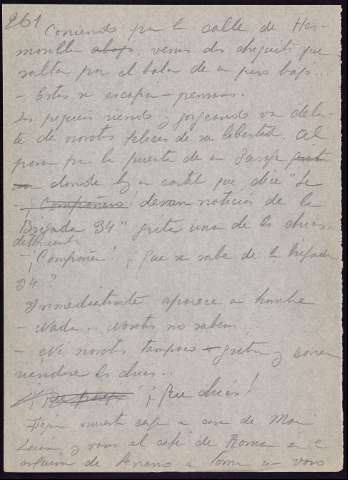 261
Corriendo por la calle de Her-
mosilla abajo, vemos dos chiquitos que
saltan por el balcón de un piso bajo...
- Estos se escapan - pensamos.
Los pequeños riendo y jugando van delan-
te de nosotros felices de su libertad. Al
pasar por la puerta de un garaje
donde hay un cartel que dice "Se
desean noticias de la
Brigada 34" grita uno de los chicos
- ¡Compañero! ¿Que se sabe de la brigada
34?
Inmediatamente aparece un hombre
- Nada... Nosotros no sabemos...
- Ni nosotros tampoco - gritan y corren
riendose los chicos.
- ¡Que chicos!
Dejan nuestra
y vamos al café de Roma a
de a tomar un vaso